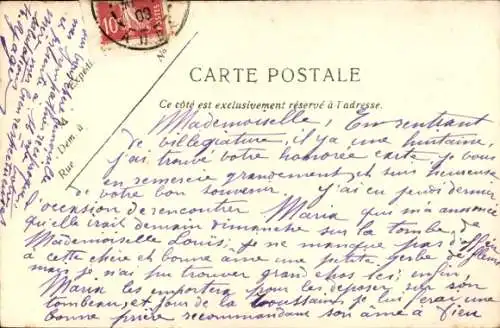 CARTE POSTALE
Ce côté est exclusivement réservé à l'adresse.
Mademoiselle, En rentrant
de villégiature, il y a une huitaine,
j'ai trouvé votre honorée carte, je vous
en remercie grandement et suis heureuse
de votre bon souvenir. J'ai eu jeudi dernier
l'occasion de rencontrer Maria qui m'a annoncé
qu'elle irait demain dimanche sur la tombe de
Mademoiselle Louise, je ne manque pas d'offrir
à cette chère et bonne âme une petite gerbe de fleurs
mais je n'ai pu trouver grand chose ici, enfin,
Maria les emportera pour les déposer sur son
tombeau, et jour de la Toussaint je lui ferai une
bonne prière recommandant son âme à Dieu
Expédié
Dem. à
Rue
No
10
09